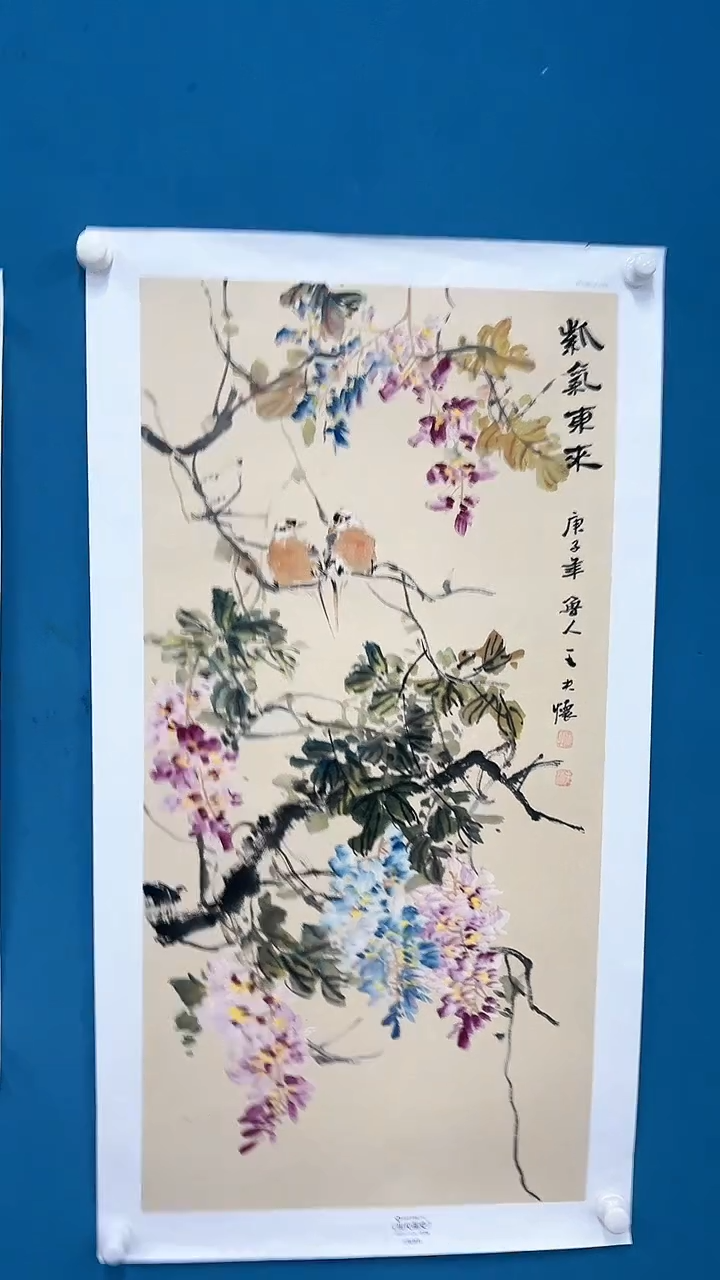 紫氣東来
庚子年 魯人 王大懷